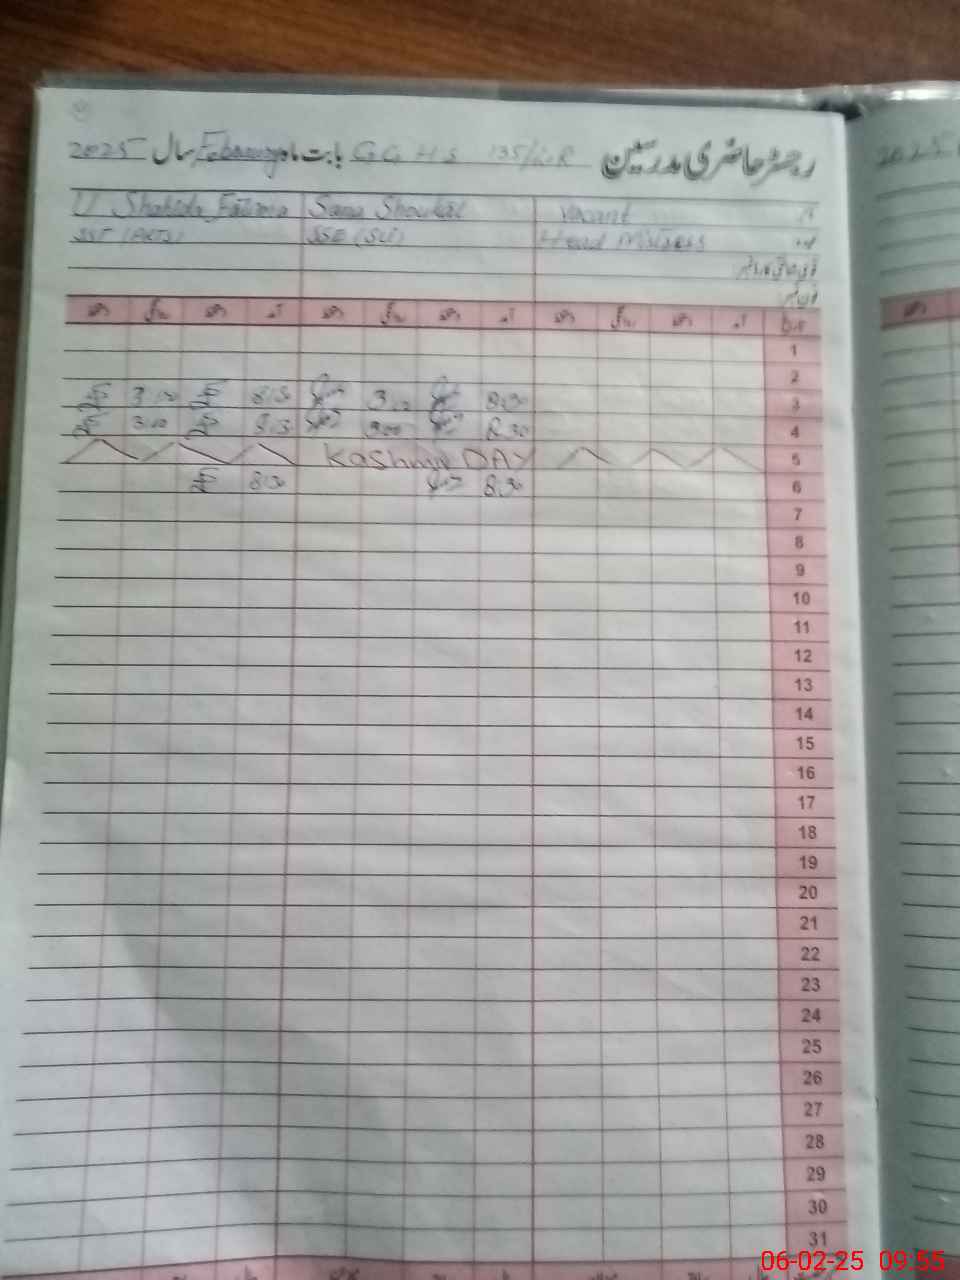 رجسٹر حاضری مدرسین G G H S 135/ بابت ماہ February سال 2025
Vacant Sana Shoukat Shahida Fatima
Head Mistress SSE (SCI) SST (ARTS)
فون نمبر
تاریخ آمد دستخط روانگی دستخط آمد دستخط روانگی دستخط آمد دستخط روانگی دستخط
1
2
3 8:30 3:00 8:30 3:00
4 8:30 300 8:30 3:00
5 Kashmir DAY
6 8:30 8:30
7
8
9
10
11
12
13
14
15
16
17
18
19
20
21
22
23
24
25
26
27
28
29
30
31
06-02-25 09:55